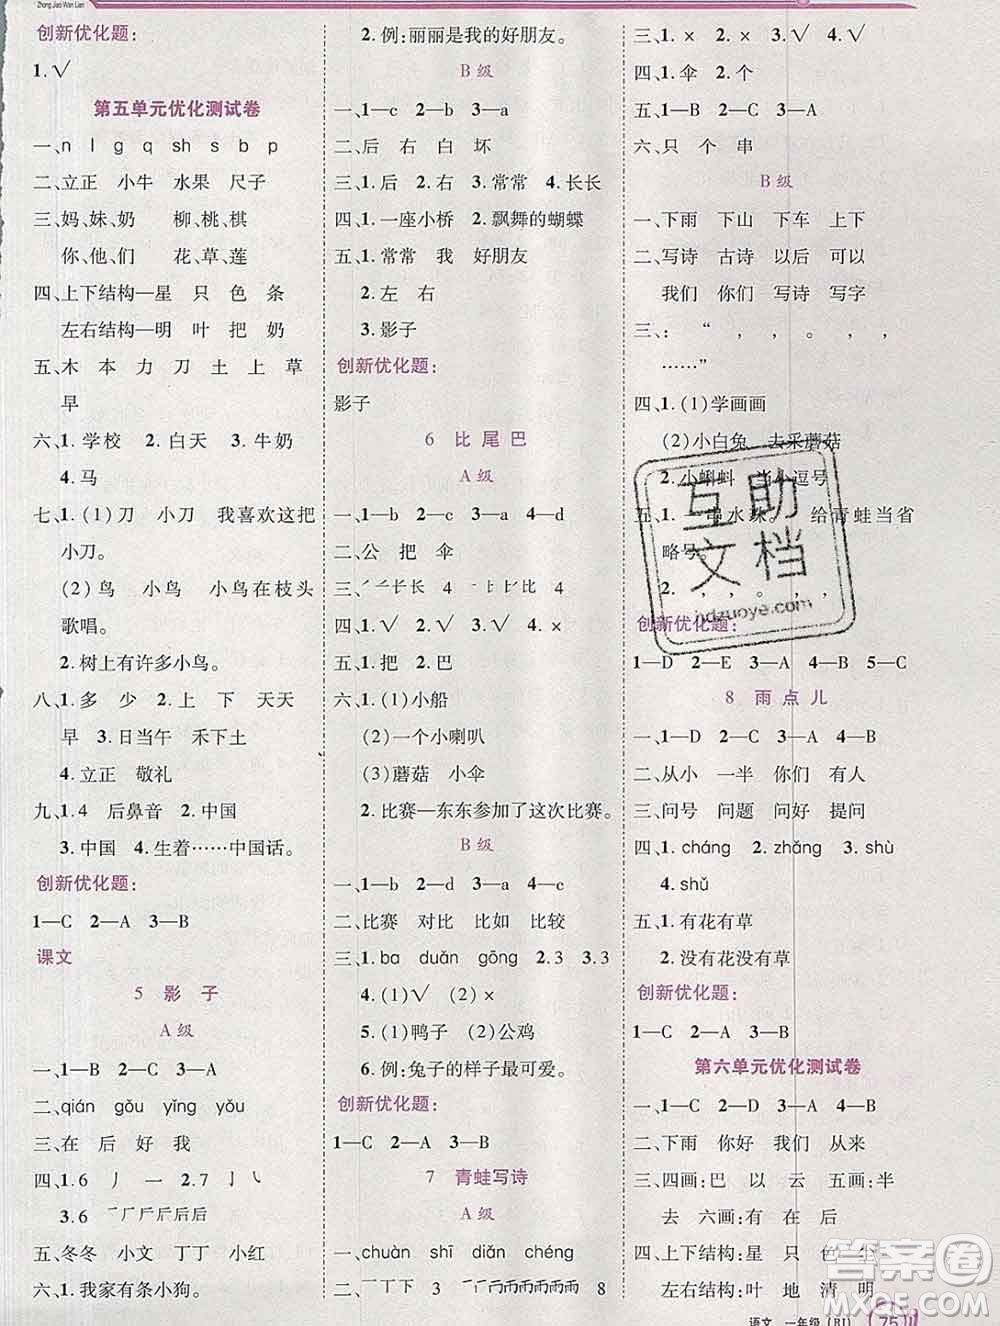 Zhong Jiao Wan Lian
创新优化题:
1.√
第五单元优化测试卷
一、n l g q sh s b p
二、立正 小牛 水果 尺子
三、妈、妹、奶 柳、桃、棋
你、他、们 花、草、莲
四、上下结构—星 只 色 条
左右结构—明 叶 把 奶
五、木 本 力 刀 土 上 草
早
六、1.学校 2.白天 3.牛奶
4.马
七、1.(1)刀 小刀 我喜欢这把
小刀。
(2)鸟 小鸟 小鸟在枝头
歌唱。
2.树上有许多小鸟。
八、1.多 少 2.上 下 天天
早 3.日当午 禾下土
4.立正 敬礼
九、1.4 后鼻音 2.中国
3.中国 4.生着……中国话。
创新优化题:
1—C 2—A 3—B
课文
5 影 子
A 级
一、1—B 2—A 3—D 4—C
二、qián gǒu yǐng yǒu
三、在 后 好 我
四、1.6 丿 一 2.7
3.6
五、冬冬 小文 丁丁 小红
六、1.我家有条小狗。
2.例:丽丽是我的好朋友。
B 级
一、1—c 2—b 3—a
二、后 右 白 坏
三、1.后 2.右 3.常常 4.长长
四、1.一座小桥 2.飘舞的蝴蝶
五、1.常常 我 好朋友
2.左 右
3.影子
创新优化题:
影子
6 比 尾 巴
A 级
一、1—b 2—c 3—a 4—d
二、公 把 伞
三、 长 4 比 4
四、1.√ 2.√ 3.√ 4.×
五、1.把 2.巴
六、1.(1)小船
(2)一个小喇叭
(3)蘑菇 小伞
2.比赛—东东参加了这次比赛。
B 级
一、1—b 2—d 3—a 4—c
二、比赛 对比 比如 比较
三、1.ba duǎn gōng 2.3 3.3
4.(1)√ (2)×
5.(1)鸭子 (2)公鸡
6.例:兔子的样子最可爱。
创新优化题:
1—C 2—A 3—B
7 青蛙写诗
A 级
一、chuàn shī diǎn chéng
二、 下 3 雨 8
三、1.× 2.× 3.√ 4.√
四、1.伞 2.个
五、1—B 2—A 3—C
六、只 个 串
B 级
一、下雨 下山 下车 上下
二、写诗 古诗 以后 可以
我们 你们 写诗 写字
三、： “ ， ， 。 ， ， 。
……”
四、1.(1)学画画
(2)小白兔 去采蘑菇
2.小蝌蚪 当小逗号
五、1. 串水珠。 给青蛙当省
略号。
2. ， ， 。 ， 。
创新优化题:
1—D 2—E 3—A 4—B 5—C
8 雨 点 儿
一、1—D 2—C 3—A 4—B
二、从小 一半 你们 有人
三、问号 问题 问好 提问
四、1.cháng 2.zhǎng 3.shù
4.shǔ
五、1.有花有草
2.没有花没有草
创新优化题:
1—C 2—A 3—B
第六单元优化测试卷
一、1—C 2—D 3—A 4—B
二、下雨 你好 我们 从来
三、四画:巴 以 云 五画:半
去 六画:有 在 后
四、上下结构:星 只 色 尘
左右结构:叶 地 清 明
语文 一年级 (RJ) 75
互助文档
hdzuoye.com
答案圈